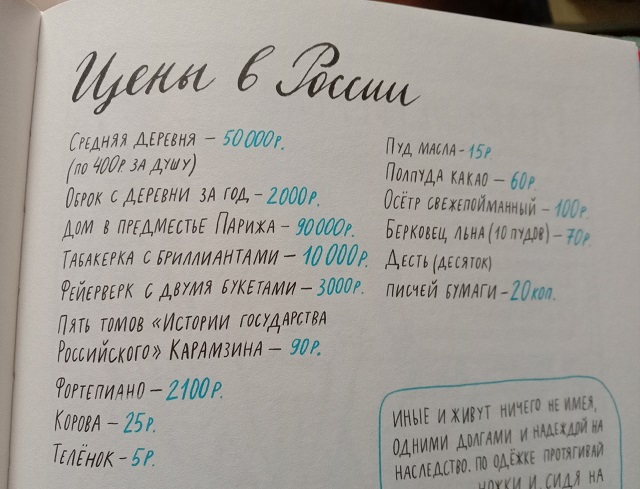 Цены в России
Средняя деревня – 50000р.
(по 400р. за душу)
Оброк с деревни за год – 2000р.
Дом в предместье Парижа – 90000р.
Табакерка с бриллиантами – 10000р.
Фейерверк с двумя букетами – 3000р.
Пять томов «Истории государства
Российского» Карамзина – 90р.
Фортепиано – 2100р.
Корова – 25р.
Телёнок – 5р.
Пуд масла – 15р.
Полпуда какао – 60р.
Осётр свежепойманный – 100р.
Берковец льна (10 пудов) – 70р.
Десть (десяток)
писчей бумаги – 20коп.
Иные и живут ничего не имея,
одними долгами и надеждой на
наследство. По одёжке протягивай
ножки и, сидя на